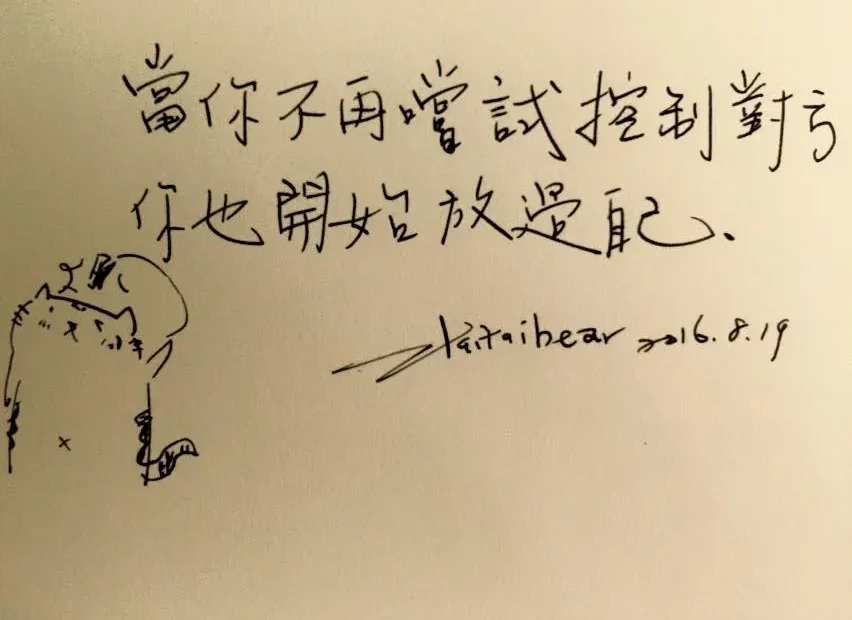 當你不再嚐試控制對方
你也開始放過自己、
taitaibear 2016.8.19